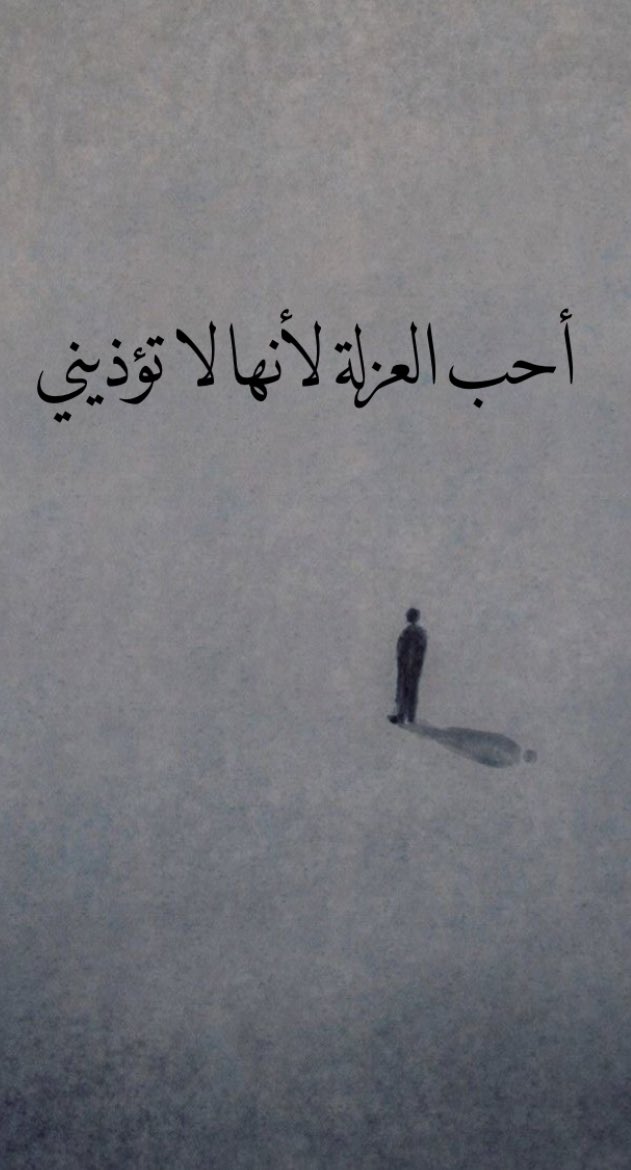 أحب العزلة لأنها لا تؤذيني